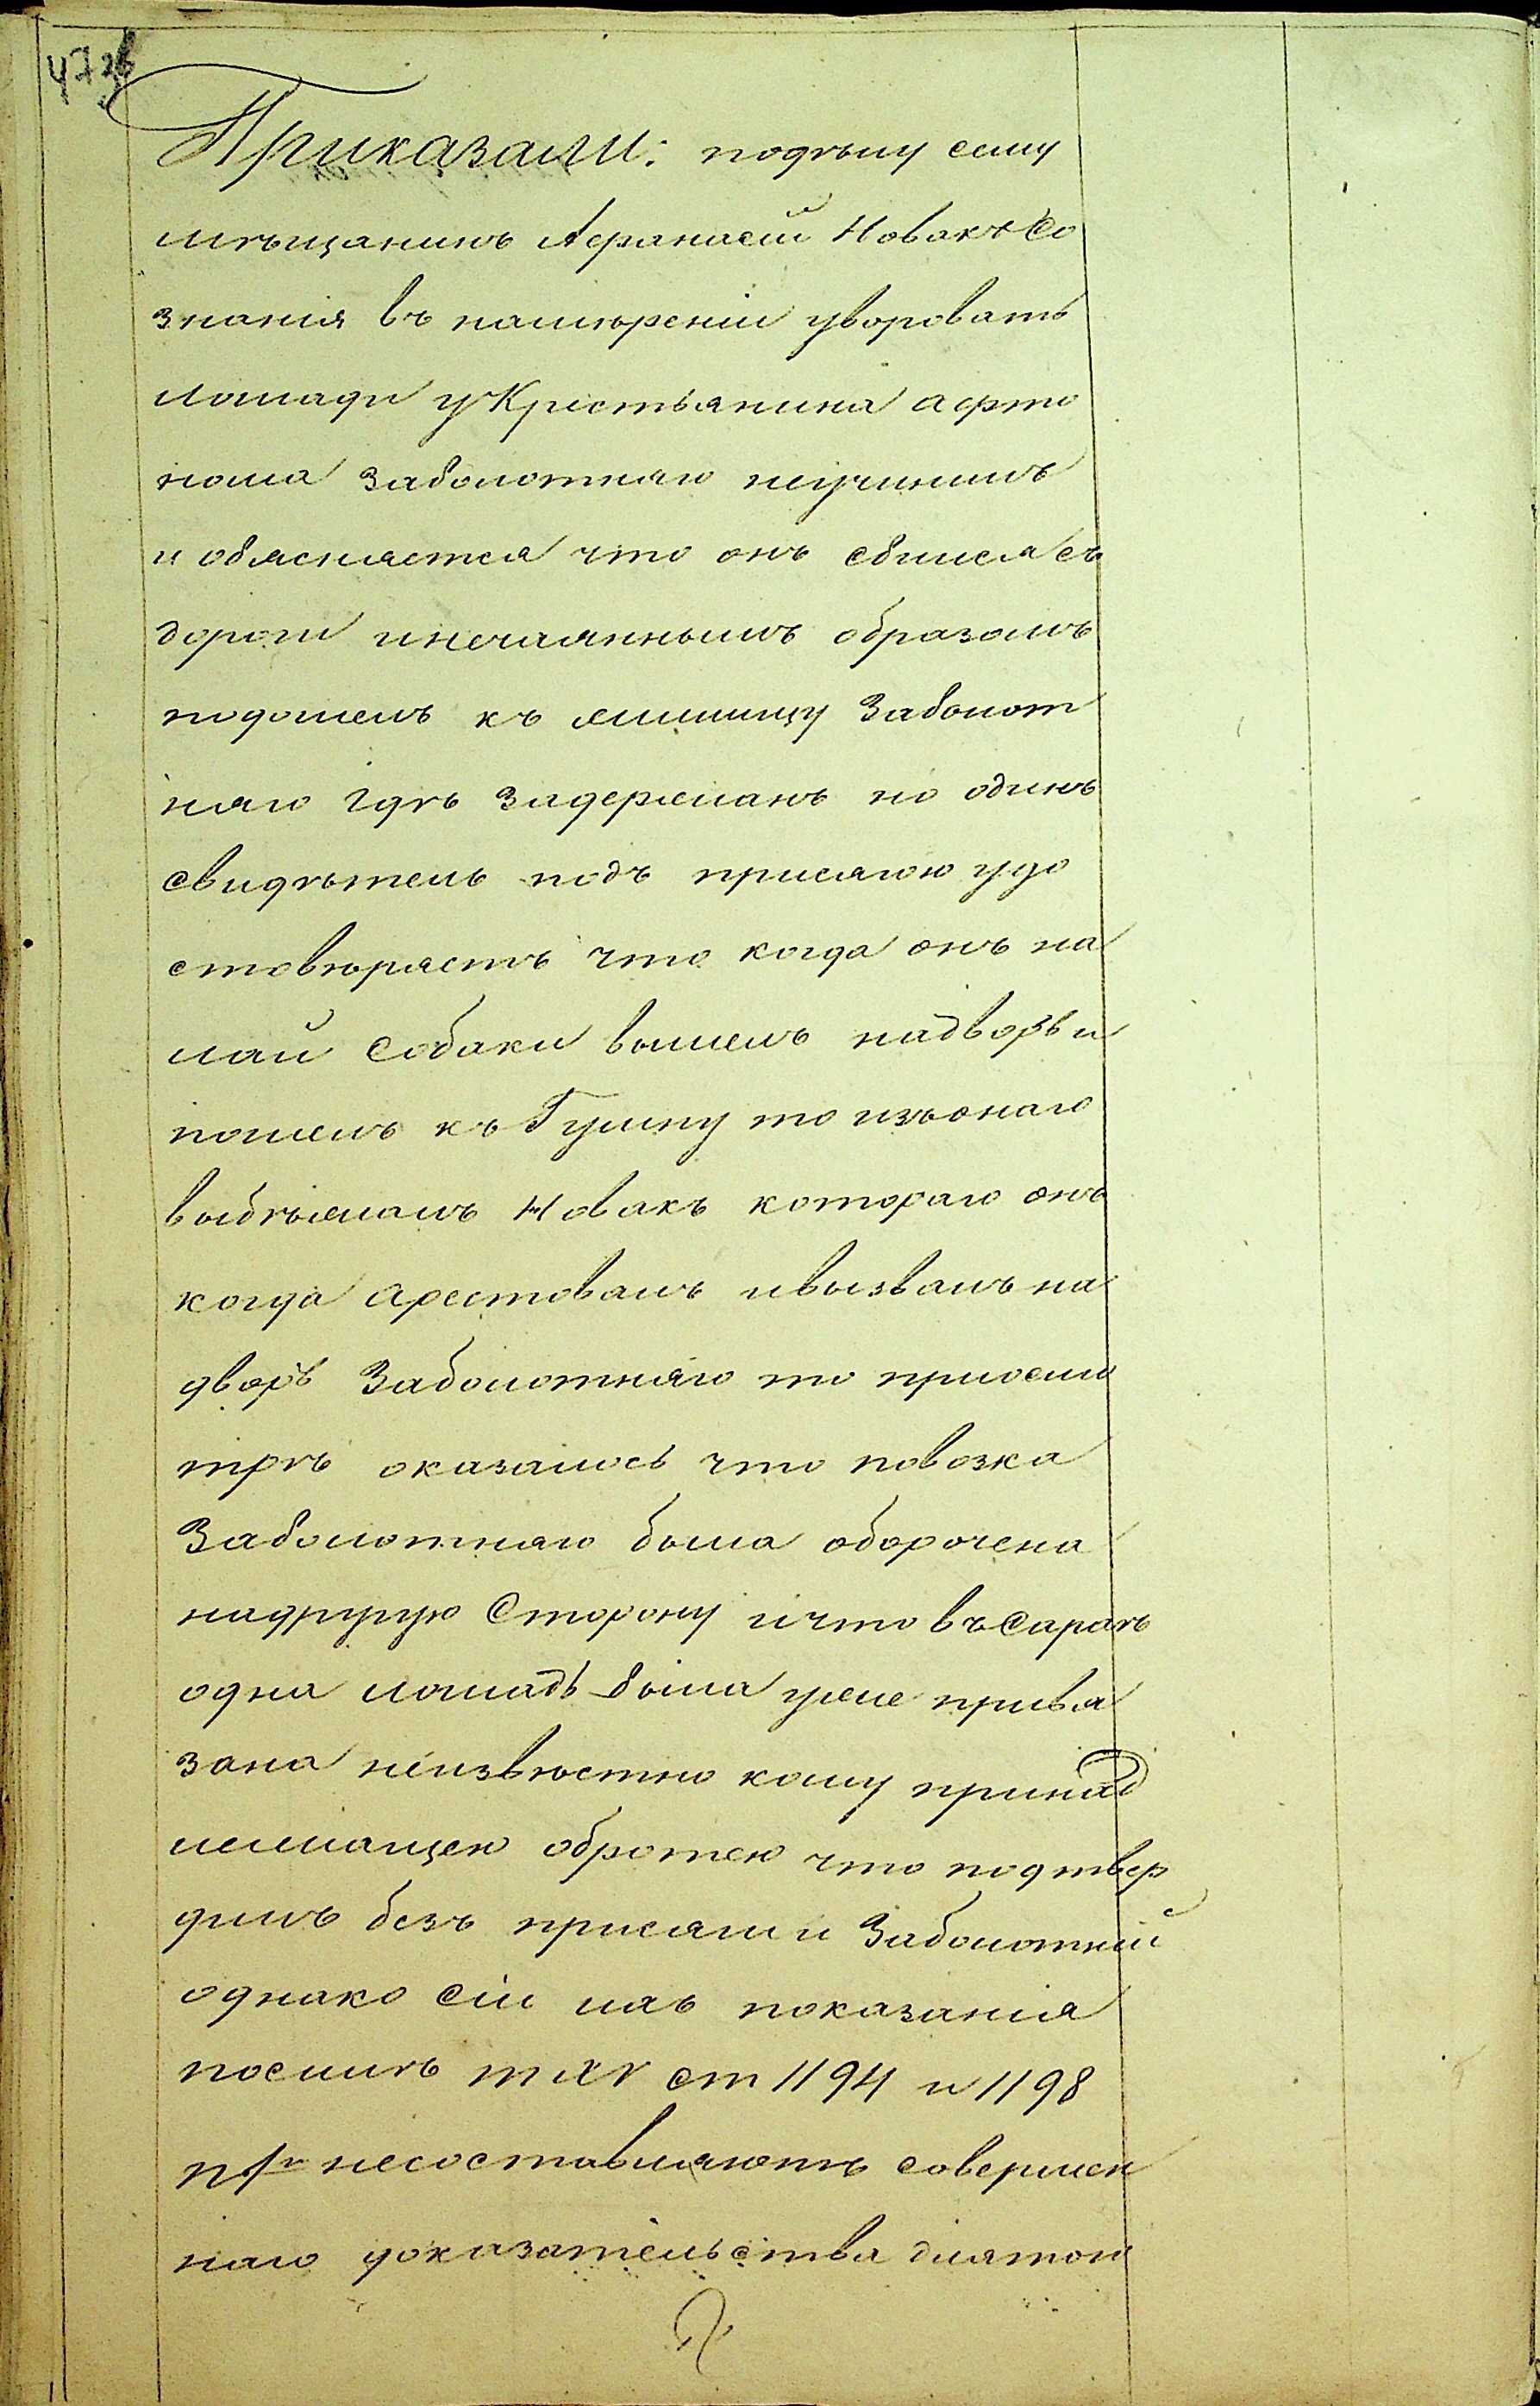 47 зв
Приказали: подѣлу сему
мѣщанинъ Афанасій Новакъ Со
знанія въ намѣреніи уворовать
лошади уКрестьянина афто
нома Заболотняго неучинилъ
и обясняется что онъ сбился съ
дороги инечаяннымъ образомъ
подошелъ къ жилищу Заболот
няго гдѣ задержанъ но одинъ
свидѣтель подъ присягою удо
стовѣряетъ что когда онъ на
лай собаки вышелъ надворъ и
пошелъ къ Гумну то изъонаго
выбѣжалъ Новакъ котораго онъ
когда арестовалъ ивызвалъ на
дворъ Заболотняго то приосмо
трѣ оказалось что повозка
Заболотняго была оборочена
надругую Сторону ичто въСараѣ
одна лошадь была уже привя
зана неизвѣстно кому принад
лежащею обротью что подтвер
дилъ безъ присяги и Заболотній
однако сіи ихъ показанія
посилѣ т XV ст 1194 и 1198
п 1й несоставляютъ совершен
наго доказательства длятого